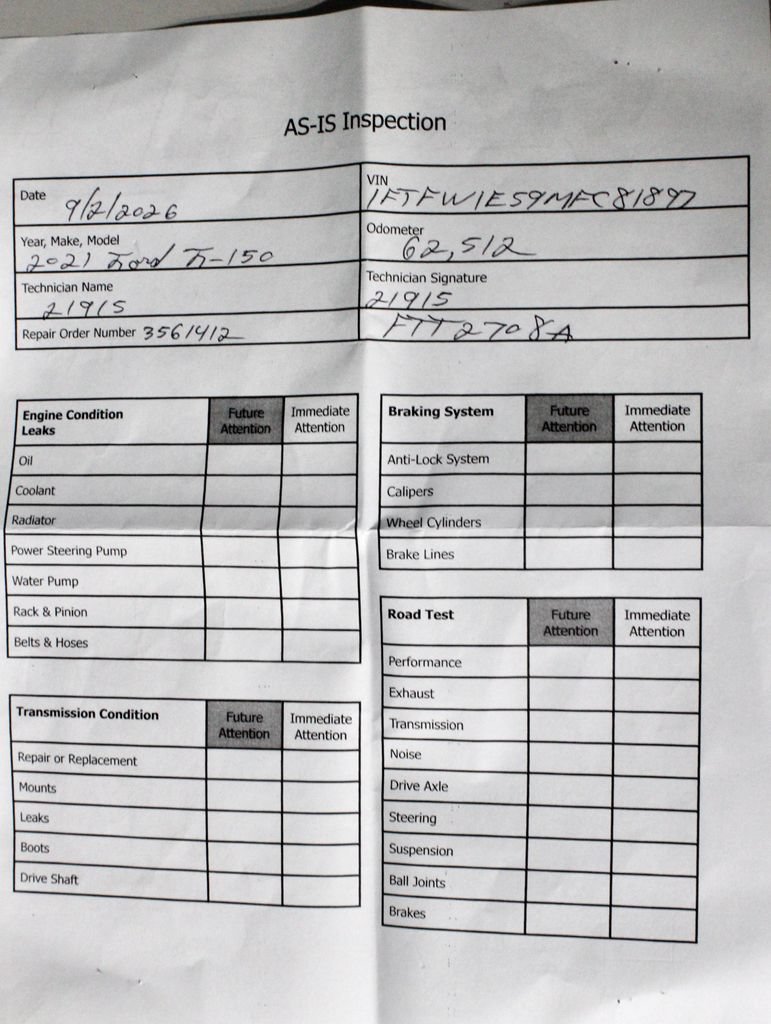 AS-IS Inspection
Date 9/2/2026
VIN 1FTFW1E59MFC81897
Year, Make, Model 2021 Ford F-150
Odometer 62,512
Technician Name 21915
Technician Signature 21915
Repair Order Number 3561412
FTT2708A
Engine Condition Leaks Future Attention Immediate Attention
Oil
Coolant
Radiator
Power Steering Pump
Water Pump
Rack & Pinion
Belts & Hoses
Transmission Condition Future Attention Immediate Attention
Repair or Replacement
Mounts
Leaks
Boots
Drive Shaft
Braking System Future Attention Immediate Attention
Anti-Lock System
Calipers
Wheel Cylinders
Brake Lines
Road Test Future Attention Immediate Attention
Performance
Exhaust
Transmission
Noise
Drive Axle
Steering
Suspension
Ball Joints
Brakes